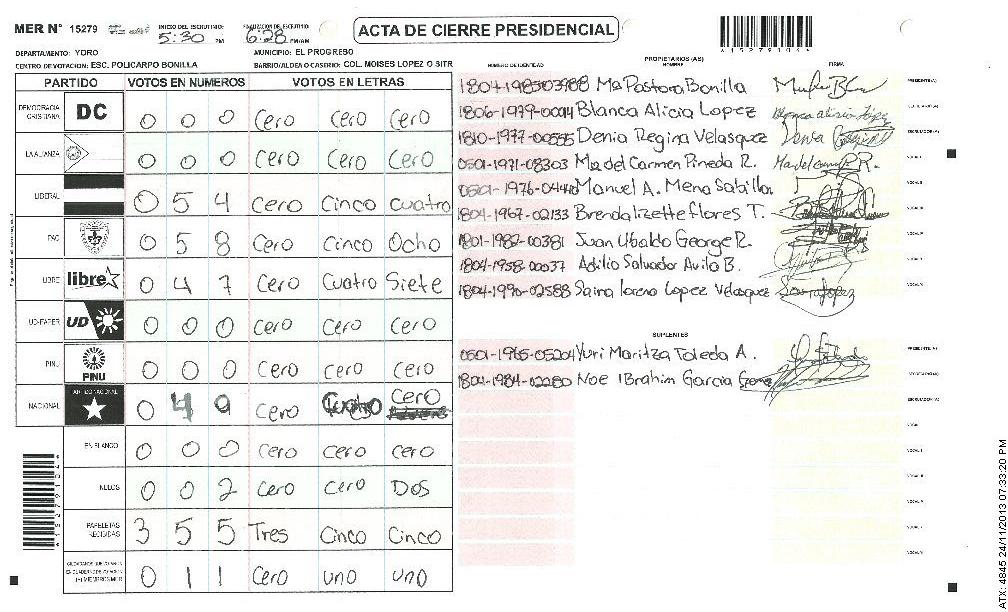 MER N° 15279 INICIO DEL ESCRUTINIO: 5:30 PM FINALIZACION DEL ESCRUTINIO: 6:28 PM/AM
ACTA DE CIERRE PRESIDENCIAL
DEPARTAMENTO: YORO MUNICIPIO: EL PROGRESO
CENTRO DE VOTACION: ESC. POLICARPO BONILLA BARRIO/ALDEA O CASERIO: COL. MOISES LOPEZ O SITR
PARTIDO VOTOS EN NUMEROS VOTOS EN LETRAS
DEMOCRACIA CRISTIANA DC 0 0 0 Cero Cero Cero
LA ALIANZA 0 0 0 Cero Cero Cero
LIBERAL 0 5 4 Cero Cinco cuatro
PAC 0 5 8 Cero Cinco Ocho
LIBRE libre 0 4 7 Cero Cuatro Siete
UD-FAPER UD 0 0 0 Cero Cero Cero
PINU PINU 0 0 0 Cero Cero Cero
NACIONAL 0 4 9 Cero Cuatro Cero
EN BLANCO 0 0 0 Cero Cero Cero
NULOS 0 0 2 Cero Cero Dos
PAPELETAS RECIBIDAS 3 5 5 Tres Cinco Cinco
0 1 1 Cero uno uno
PROPIETARIOS (AS)
NUMERO DE IDENTIDAD NOMBRE FIRMA
Ma Pastora Bonilla PRESIDENTE(A)
1806-1979-00014 Blanca Alicia Lopez Blanca alicia López
1810-1977-00555 Denia Regina Velasquez Denia
0501-1971-08303 Ma del Carmen Pineda R. Ma del carmen P.R.
Manuel A. Mena
1804-1967-02133 Brenda lizette flores T.
1801-1982-00381 Juan Ubaldo George R.
1804-1958-00037 Adilio Salvador Avila B.
1804-1990-02588 Saira lorena Lopez Velasquez
SUPLENTES
0501-1965-05204 Yuri Maritza Toledo A. PRESIDENTE(A)
1804-1984-02280 Noe Ibrahin Garcia
ATX: 4845 24/11/2013 07:33:20 PM